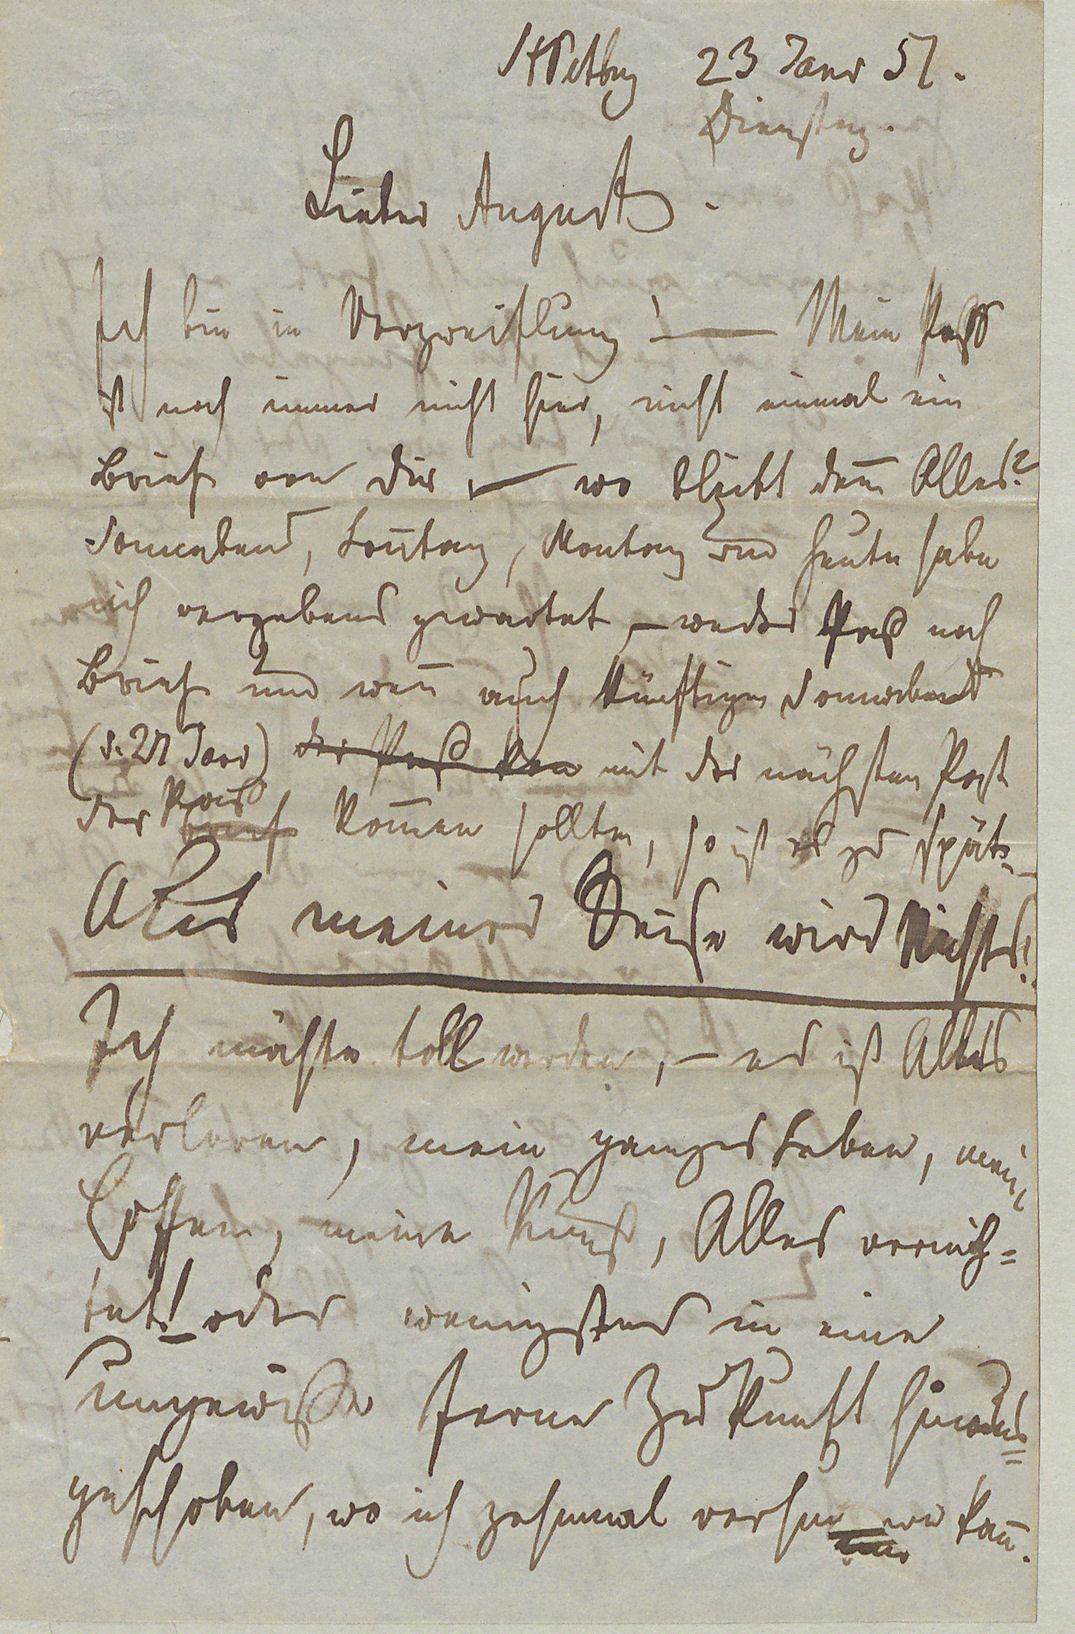 St Petbg 23 Janr 57.
Dienstag.
Lieber August.
Ich bin in Verzweiflung! — Mein Paß
ist noch immer nicht hier, nicht einmal ein
Brief von dir, — wo bleibt den̅ Alles?
Sonnabend, Son̅tag, Montag und heute habe
ich vergebens gewartet, — weder Paß noch
Brief und wen̅ auch künftigen Sonnabend
(d. 27 Janr) der Paß kon mit der nächsten Post
der Brief Paß kom̅en sollte, so ist es zu spät. —
Aus meiner Reise wird Nichts!
Ich möchte toll werden, — es ist Alles
verloren, mein ganzes Leben, mein
Hoffen, meine Kunst, Alles vernich=
tet! oder wenigstens in eine
ungewisse ferne Zukunft hinaus=
geschoben, wo ich zehnmal verhungern kan̅.